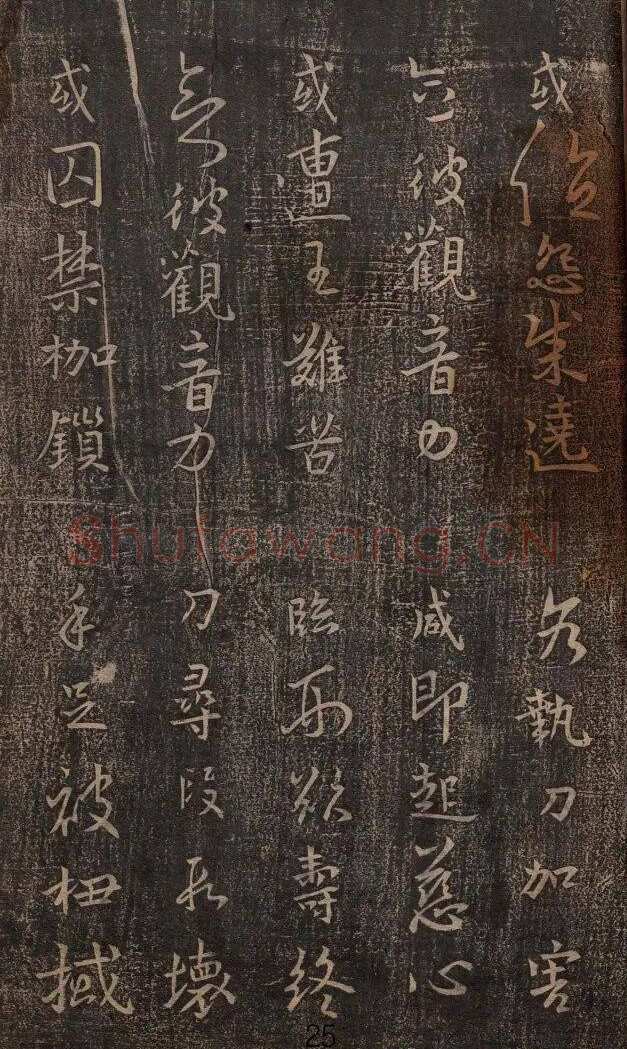 或值怨賊遶 各執刀加害
念彼觀音力 咸即起慈心
或遭王難苦 臨刑欲壽終
念彼觀音力 刀尋段段壞
或囚禁枷鎖 手足被杻械
Shufawang.CN
25